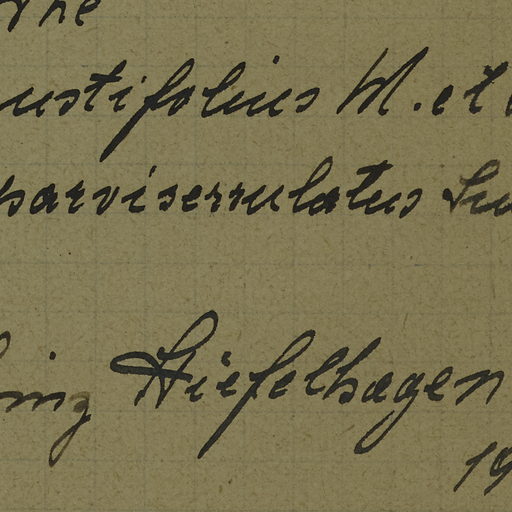 ustifolius W. et
parviserrulatus Su
Stiefelhagen
19